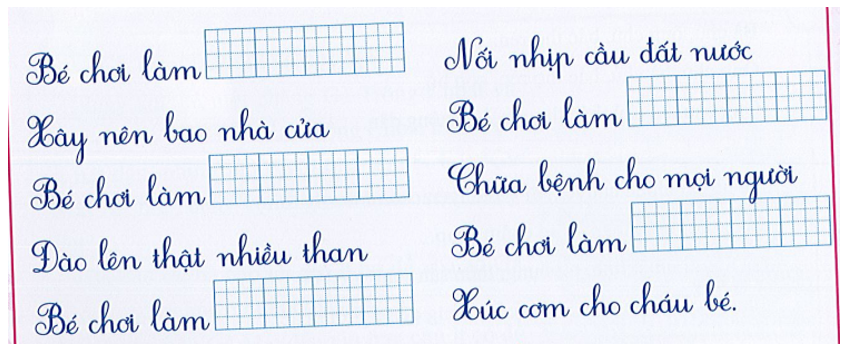 Bé chơi làm
Xây nên bao nhà cửa
Bé chơi làm
Đào lên thật nhiều than
Bé chơi làm
Nối nhịp cầu đất nước
Bé chơi làm
Chữa bệnh cho mọi người
Bé chơi làm
Xúc cơm cho cháu bé.